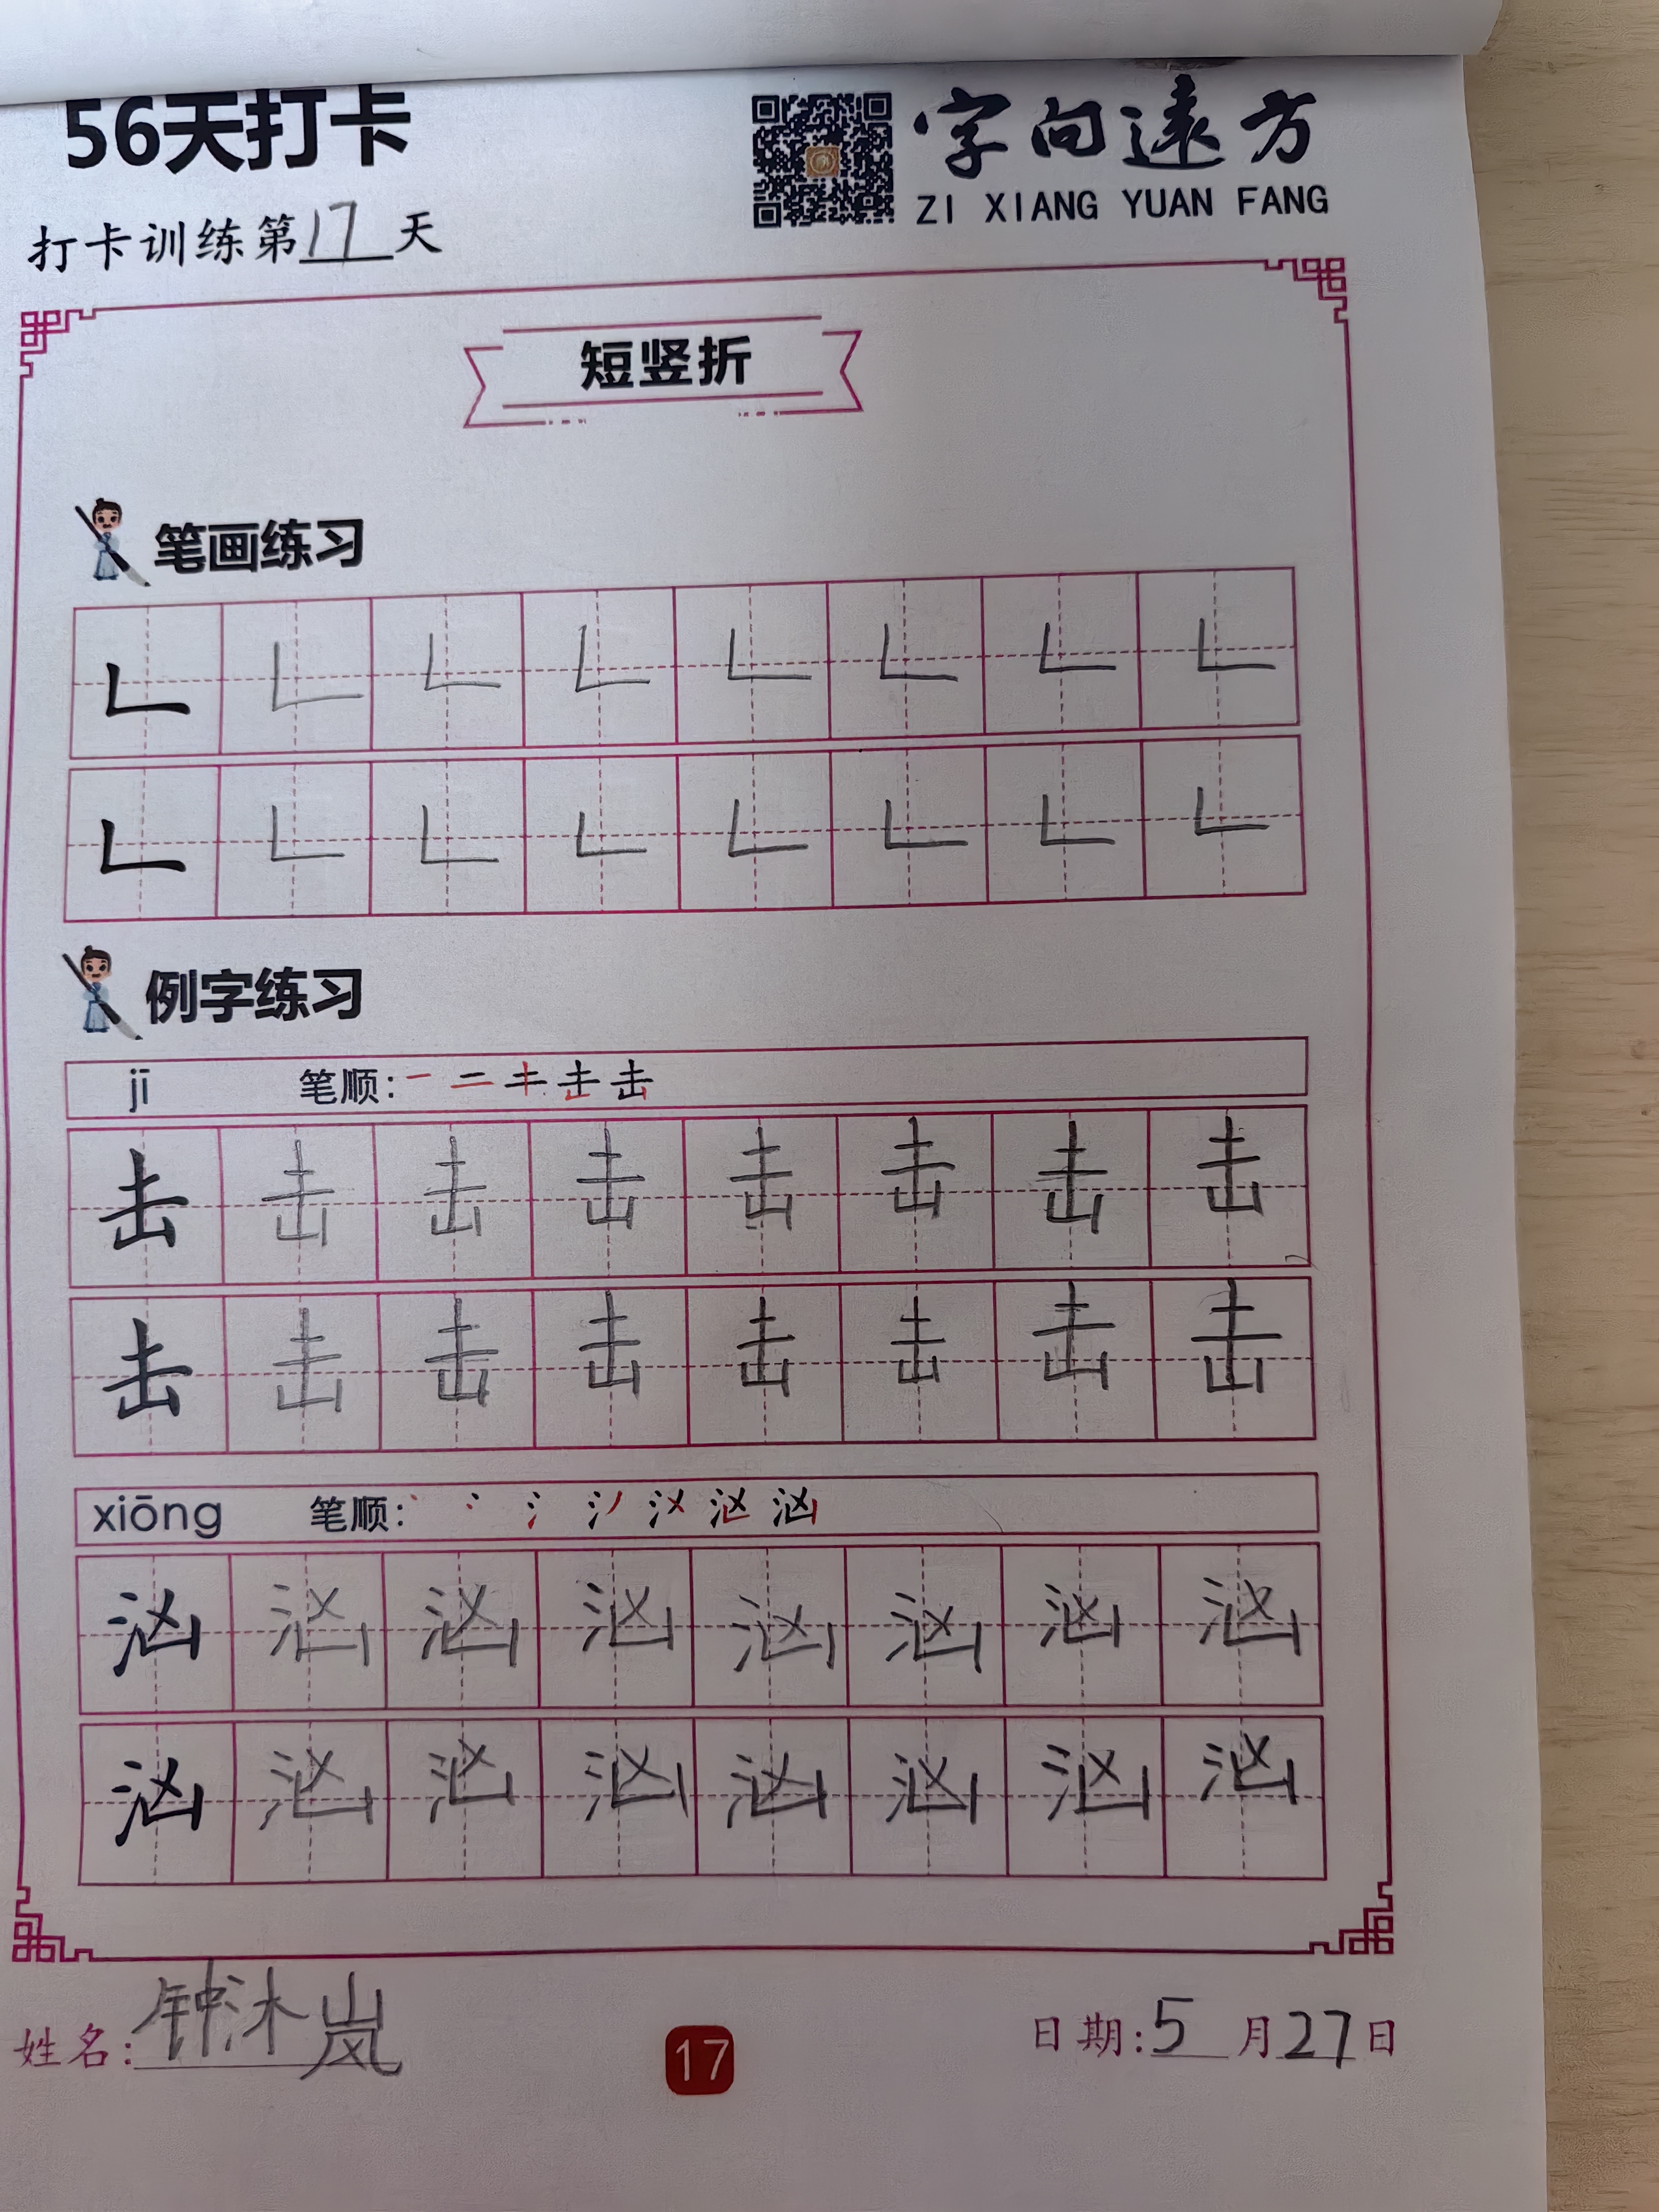 56天打卡
字向遠方
ZI XIANG YUAN FANG
打卡训练第17天
短竖折
笔画练习
例字练习
jī 笔顺: 击
击 击 击 击 击 击 击 击
击 击 击 击 击 击 击 击
xiōng 笔顺: 汹
汹 汹 汹 汹 汹 汹 汹 汹
汹 汹 汹 汹 汹 汹 汹 汹
姓名: 钟沐岚
17
日期: 5月27日